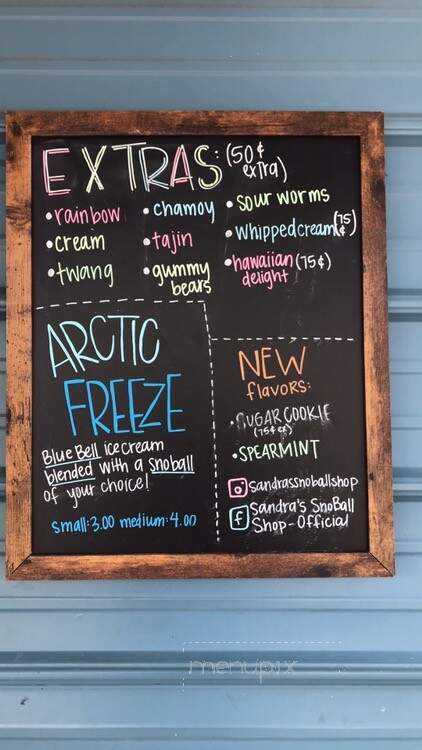 EXTRAS: (50¢
extra)
• rainbow
• cream
• twang
• chamoy
• tajin
• gummy
bears
• sour worms
• whipped cream (75
¢)
• hawaiian (75¢)
delight
ARCTIC
FREEZE
Blue Bell ice cream
blended with a snoball
of your choice!
small: 3.00 medium: 4.00
NEW
flavors:
• SUGAR COOKIE
• SPEARMINT
sandrassnoballshop
Sandra's SnoBall
Shop - Official
menupix